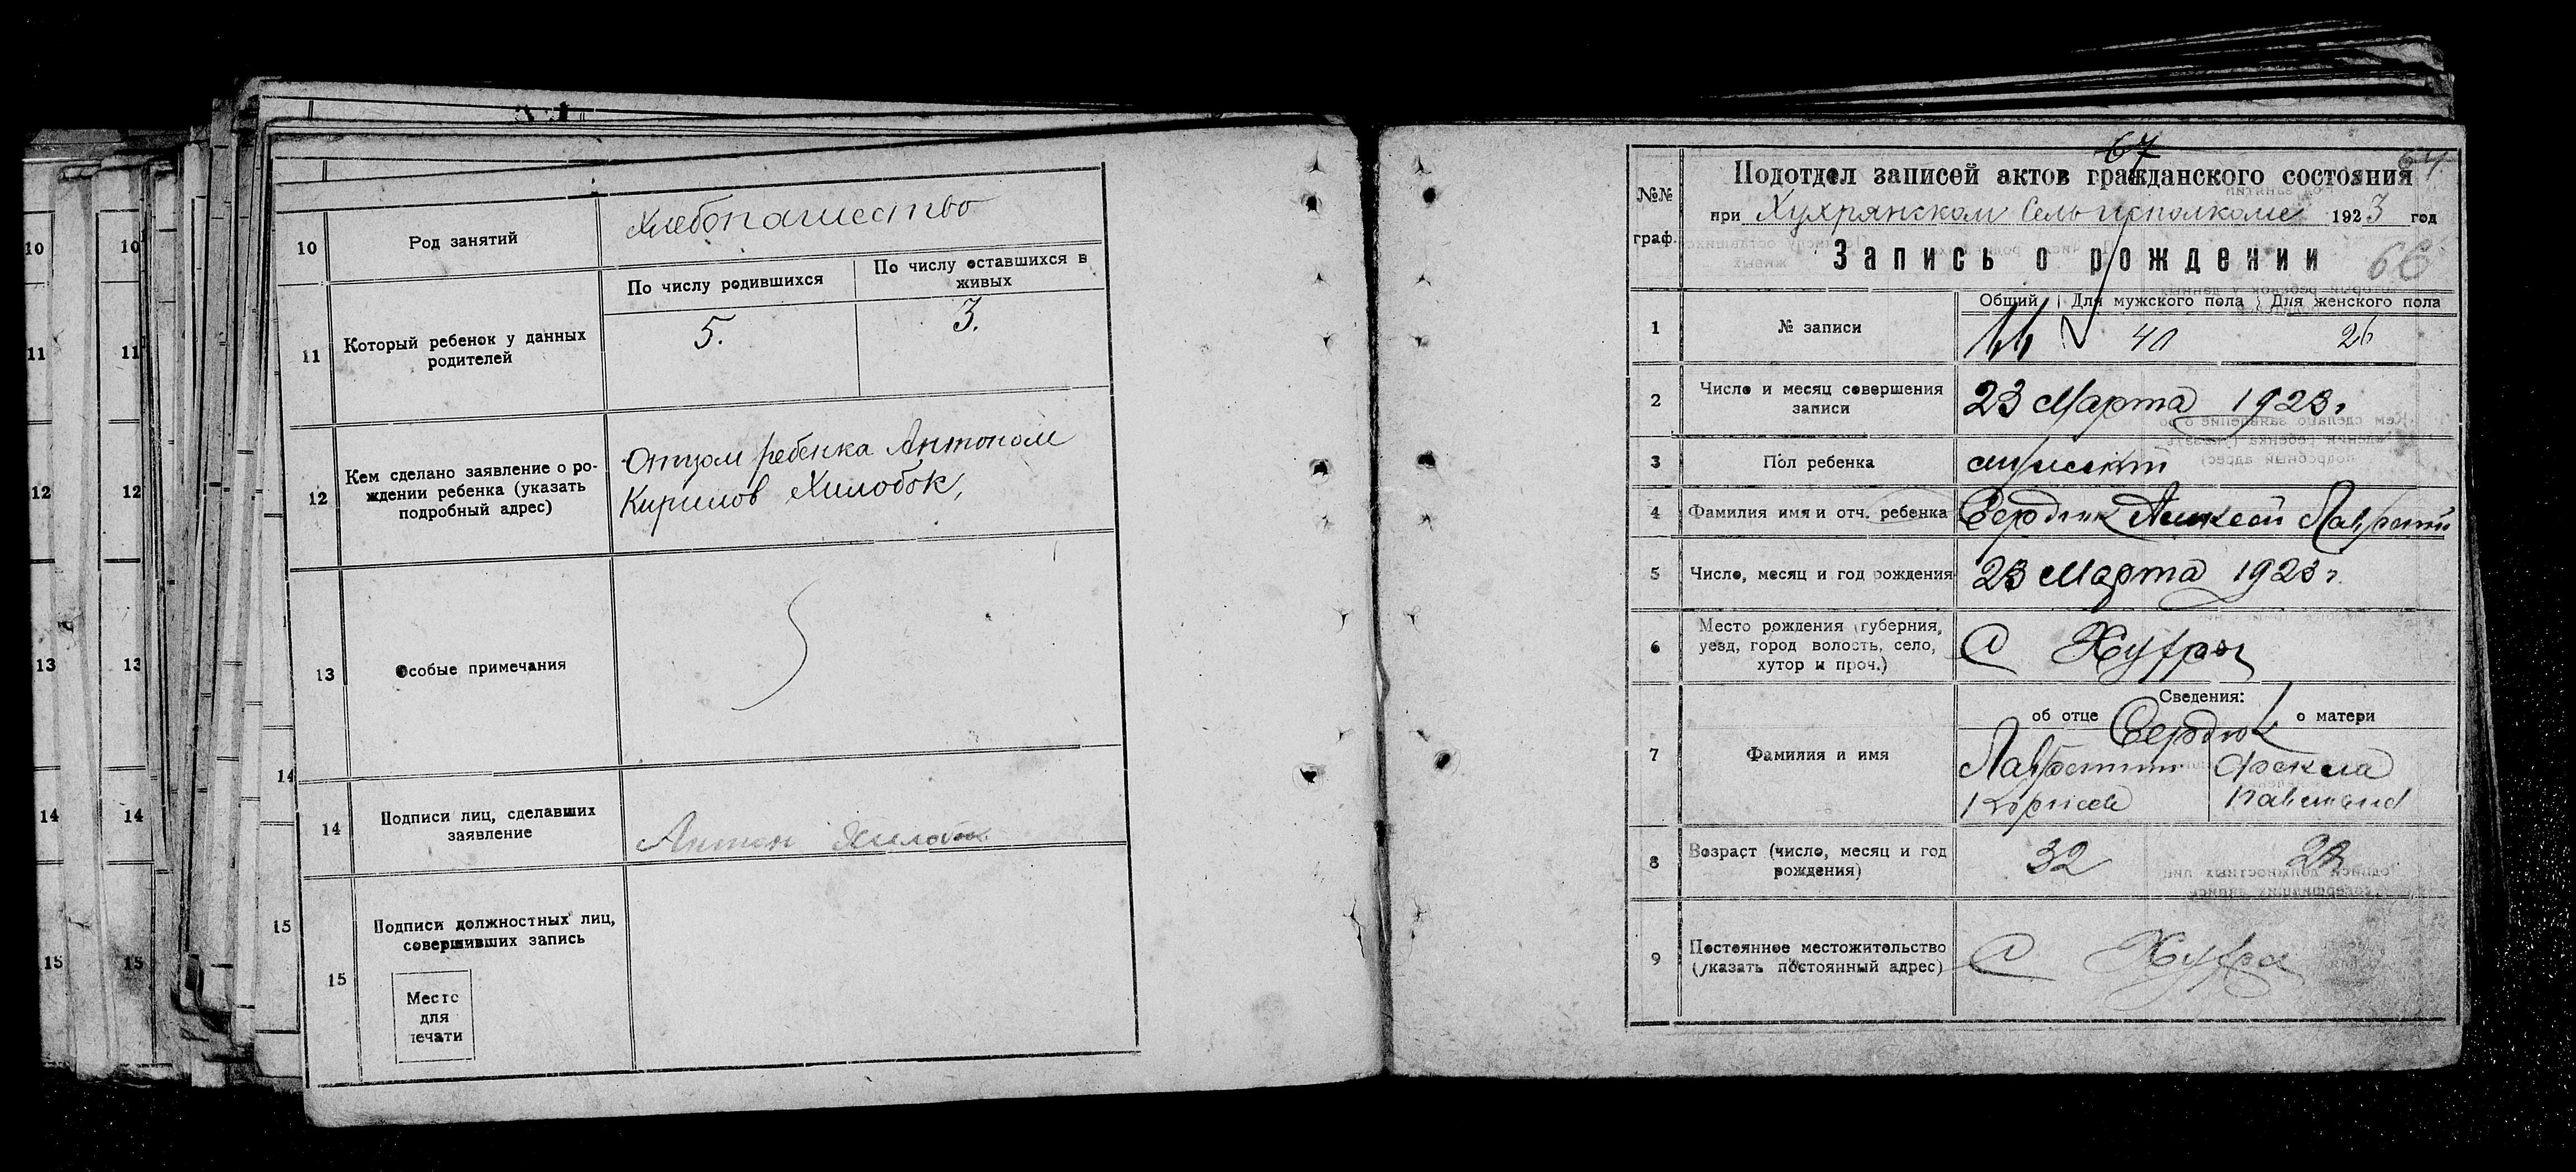 10
11
12
13
14
15
10
11
12
13
14
15
14
15
10 Род занятий Хлебопашество
11 Который ребенок у данных
родителей
По числу родившихся
По числу оставшихся в
живых
5.
3.
12 Кем сделано заявление о ро-
ждении ребенка (указать
подробный адрес)
Отцом ребенка Антоном
Кирилов Хилобок,
13 Особые примечания
14 Подписи лиц, сделавших
заявление
Антон Хилобок
15 Подписи должностных лиц,
совершивших запись
Место
для
печати
67
64
№№
граф.
Подотдел записей актов гражданского состояния
при Хухрянском Сельисполкоме 1923 год
Запись о рождении
66
1 № записи
Общий Для мужского пола Для женского пола
66 40 26
2 Число и месяц совершения
записи
23 Марта 1923 г.
3 Пол ребенка мужской
4 Фамилия имя и отч. ребенка Сердюк Алексей
5 Число, месяц и год рождения 23 Марта 1923 г.
6 Место рождения (губерния,
уезд, город волость, село,
хутор и проч.)
С Хухра
7 Фамилия и имя
Сведения:
об отце о матери
Сердюк
Лаврентий Фекла
Корнеев
8 Возраст (число, месяц и год
рождения)
32
9 Постоянное местожительство
(указать постоянный адрес)
С Хухра